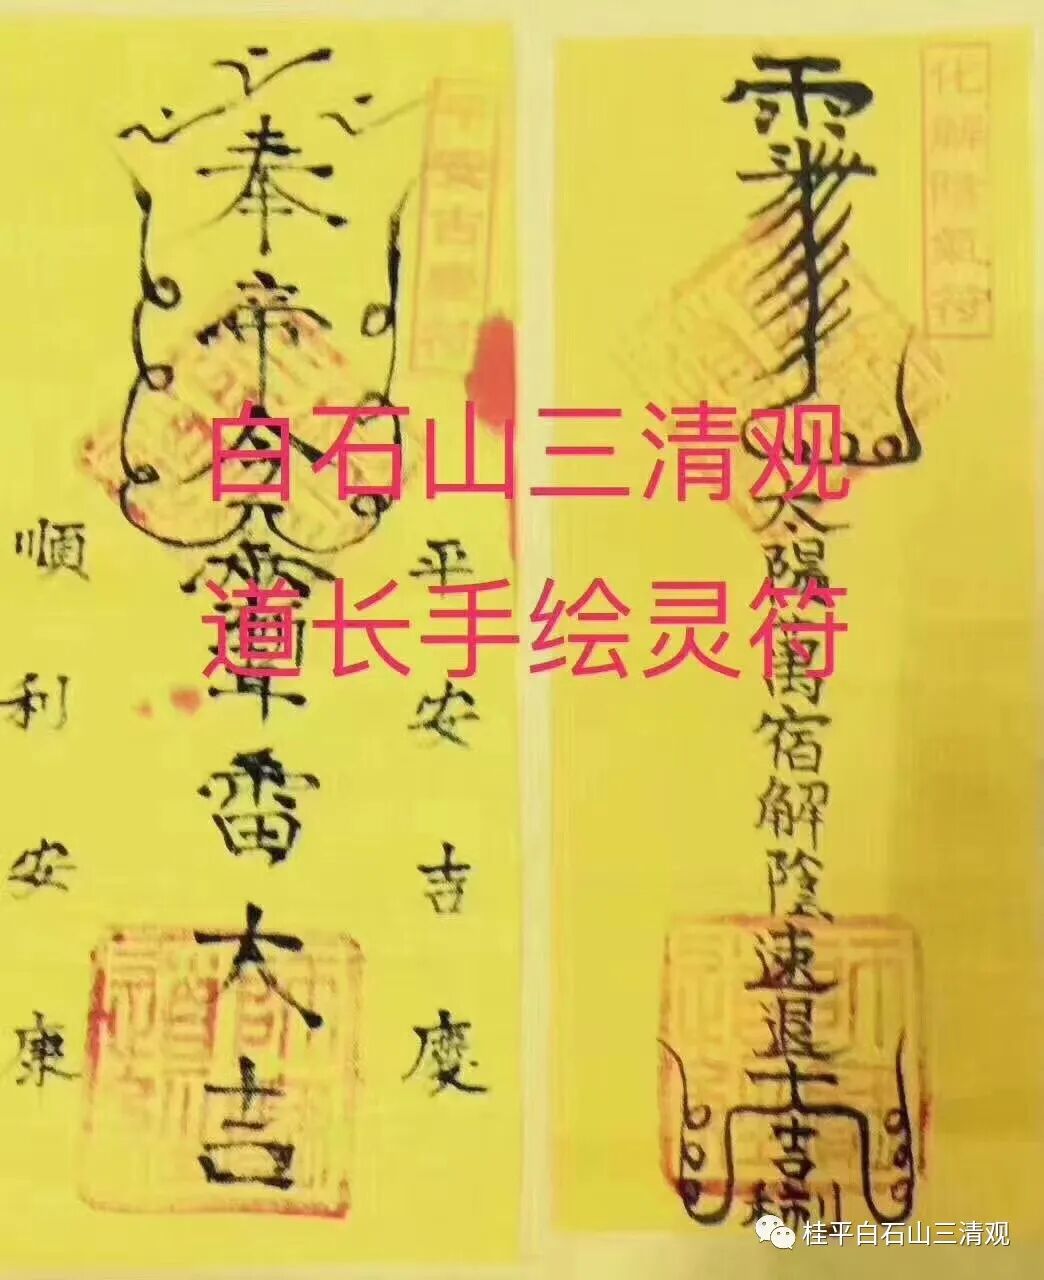 白石山三清观
道长手绘灵符
奉
帝
令
雷
大
吉
平安吉慶
順利安康
平安吉慶符
化解陰氣符
太陽萬宿解陰速退
吉
利
桂平白石山三清观